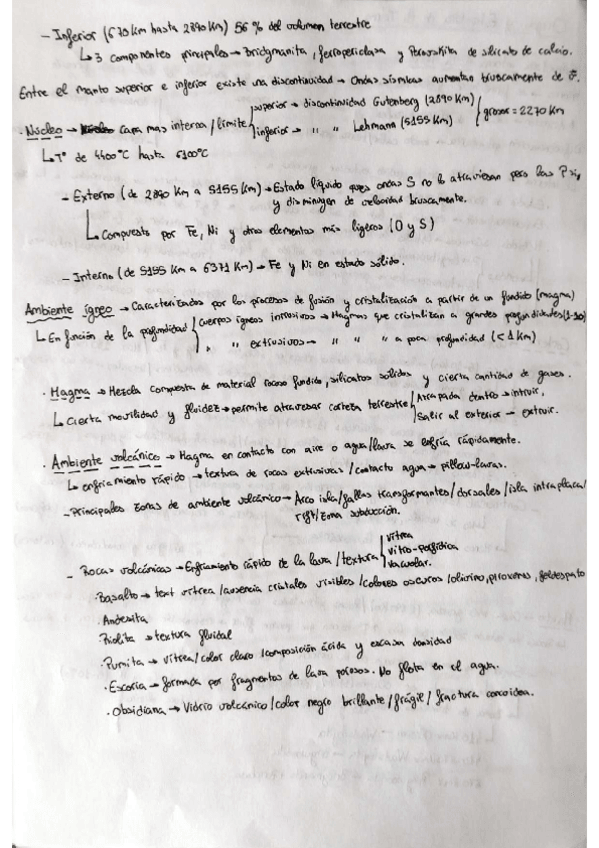 - Inferior (670 Km hasta 2890 Km) 56 % del volumen terrestre
↳ 3 componentes principales → Bridgmanita, ferropericlasa y Perovskita de silicato de calcio.
Entre el manto superior e inferior existe una discontinuidad → Ondas sísmicas aumentan bruscamente de v.
· Núcleo → capa más interna / límite { superior → discontinuidad Gutenberg (2890 Km) } grosor = 2270 Km
inferior → " " Lehmann (5155 Km)
↳ Tª de 4400°C hasta 6100°C
- Externo (de 2890 Km a 5155 Km) → Estado líquido pues ondas S no lo atraviesan pero las P si,
y disminuyen de velocidad bruscamente.
↳ Compuesto por Fe, Ni y otros elementos más ligeros (O y S)
- Interno (de 5155 Km a 6371 Km) → Fe y Ni en estado sólido.
Ambiente ígneo → Caracterizados por los procesos de fusión y cristalización a partir de un fundido (magma)
↳ En función de la profundidad { Cuerpos ígneos intrusivos → Magmas que cristalizan a grandes profundidades
" " extrusivos → " " " a poca profundidad (< 1 Km)
· Magma → Mezcla compuesta de material rocoso fundido, silicatos sólidos y cierta cantidad de gases.
↳ Cierta movilidad y fluidez → permite atravesar corteza terrestre { Atrapada dentro → intruir.
Salir al exterior → extruir.
· Ambiente volcánico → Magma en contacto con aire o agua / lava se enfría rápidamente.
↳ enfriamiento rápido → textura de rocas extrusivas / contacto agua → pillow-lavas.
- Principales zonas de ambiente volcánico → Arco isla / fallas transformantes / dorsales / isla intraplaca /
rift / zona subducción.
- Rocas volcánicas → Enfriamiento rápido de la lava / textura { vítrea
vitro-porfídica
vacuolar.
· Basalto → text vítrea / ausencia cristales visibles / colores oscuros / olivino, piroxenos, feldespato
· Andesita
Riolita → textura fluidal
· Pumita → vítrea / color claro / composición ácida y escasa densidad
· Escoria → formada por fragmentos de lava porosos. No flota en el agua.
· Obsidiana → Vidrio volcánico / color negro brillante / frágil / fractura concoidea.